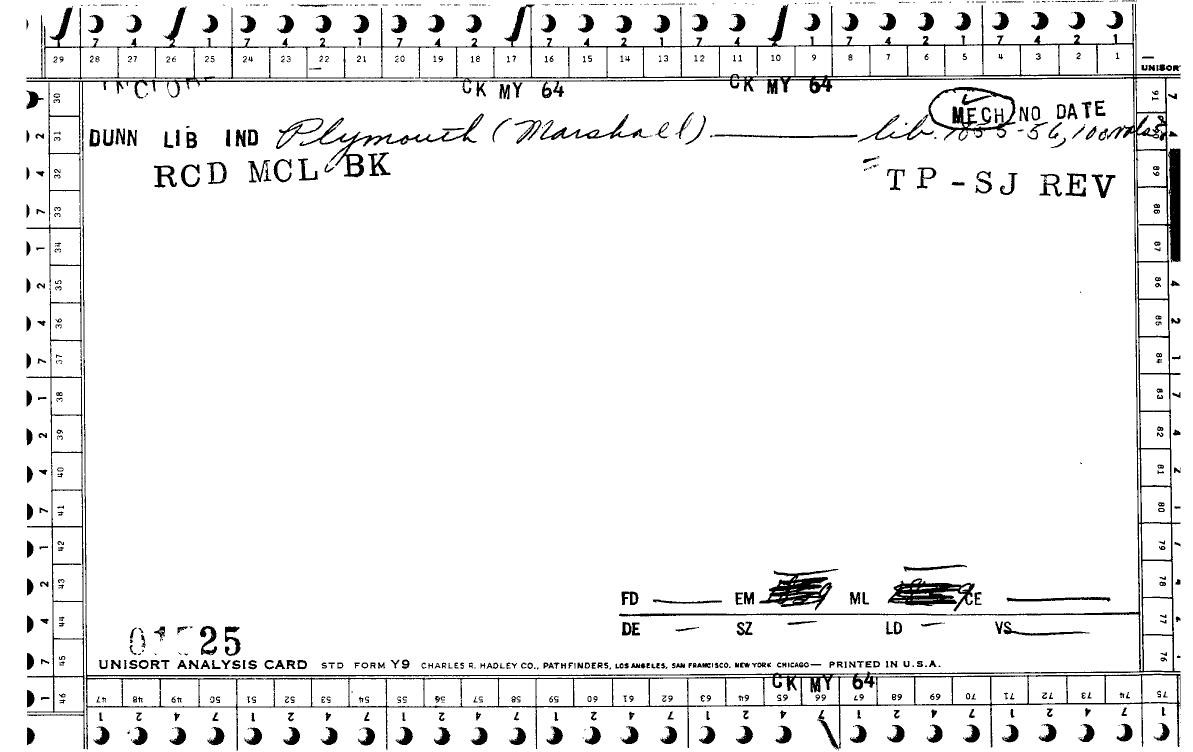 7 4 2 1 7 4 2 1 7 4 2 1 7 4 2 1 7 4 2 1 7 4 2 1 7 4 2 1
29 28 27 26 25 24 23 22 21 20 19 18 17 16 15 14 13 12 11 10 9 8 7 6 5 4 3 2 1
UNISOR
CK MY 64 CK MY 64
MECH NO DATE
DUNN LIB IND Plymouth (Marshall) lib. 1855-56, 100 vols
RCD MCL BK = TP-SJ REV
30
31
32
33
34
35
36
37
38
39
40
41
42
43
44
45
46
91
89
88
87
86
85
84
83
82
81
80
79
78
77
76
75
FD EM ML CE
DE SZ LD VS
25
UNISORT ANALYSIS CARD STD FORM Y9 CHARLES R. HADLEY CO., PATHFINDERS, LOS ANGELES, SAN FRANCISCO, NEW YORK CHICAGO— PRINTED IN U.S.A.
CK MY 64
47 48 49 50 51 52 53 54 55 56 57 58 59 60 61 62 63 64 65 66 67 68 69 70 71 72 73 74
1 2 4 7 1 2 4 7 1 2 4 7 1 2 4 7 1 2 4 7 1 2 4 7 1 2 4 7 1